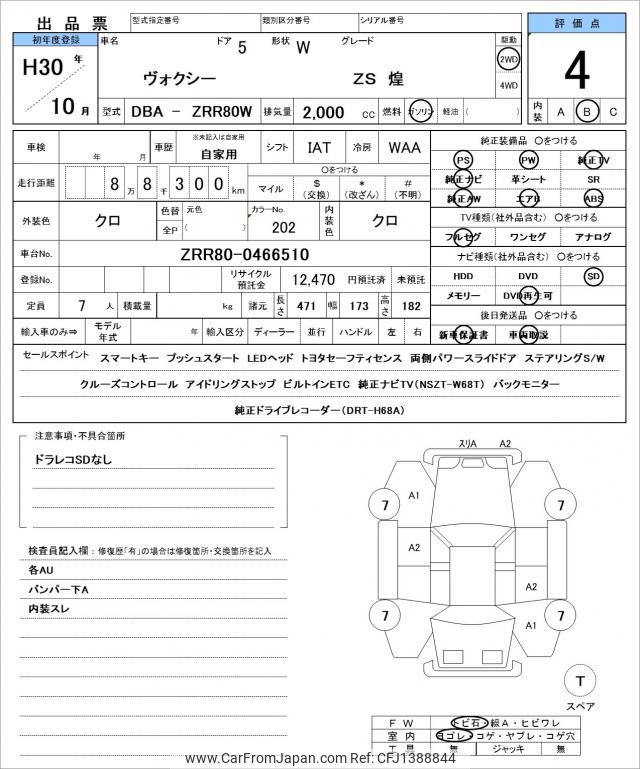 出品票 型式指定番号 類別区分番号 シリアル番号
評価点
初年度登録 車名 ドア 5 形状 W グレード 駆動
H30 年 ヴォクシー ZS 煌 2WD 4
4WD
10 月 型式 DBA － ZRR80W 排気量 2,000 cc 燃料 ガソリン 軽油 ( ) 内装 A B C
車検 年 月 車歴 ※未記入は自家用 自家用 シフト IAT 冷房 WAA 純正装備品 〇をつける
PS PW 純正TV
走行距離 8 万 8 千 3 0 0 km マイル 〇をつける $ (交換) * (改ざん) # (不明) 純正ナビ 革シート SR
純正AW エアB ABS
外装色 クロ 色替 全P 元色 ( ) カラーNo. 202 内装色 クロ TV種類(社外品含む) 〇をつける
フルセグ ワンセグ アナログ
車台No. ZRR80-0466510 ナビ種類(社外品含む) 〇をつける
登録No. リサイクル預託金 12,470 円預託済 未預託 HDD DVD SD
定員 7 人 積載量 kg 諸元 長さ 471 幅 173 高さ 182 メモリー DVD再生可
後日発送品 〇をつける
輸入車のみ⇒ モデル年式 年 輸入区分 ディーラー 並行 ハンドル 左 右 新車保証書 車両取説
セールスポイント スマートキー プッシュスタート LEDヘッド トヨタセーフティセンス 両側パワースライドドア ステアリングS/W
クルーズコントロール アイドリングストップ ビルトインETC 純正ナビTV(NSZT-W68T) バックモニター
純正ドライブレコーダー(DRT-H68A)
注意事項・不具合箇所
ドラレコSDなし
検査員記入欄：修復歴「有」の場合は修復箇所・交換箇所を記入
各AU
バンパー下A
内装スレ
スリA A2
A1
7 7
A2
A2
7 A1 7
T
スペア
FW トビ石・線A・ヒビワレ
室内 ヨゴレ・コゲ・ヤブレ・コゲ穴
工具 無 ジャッキ 無
www.CarFromJapan.com Ref: CFJ1388844